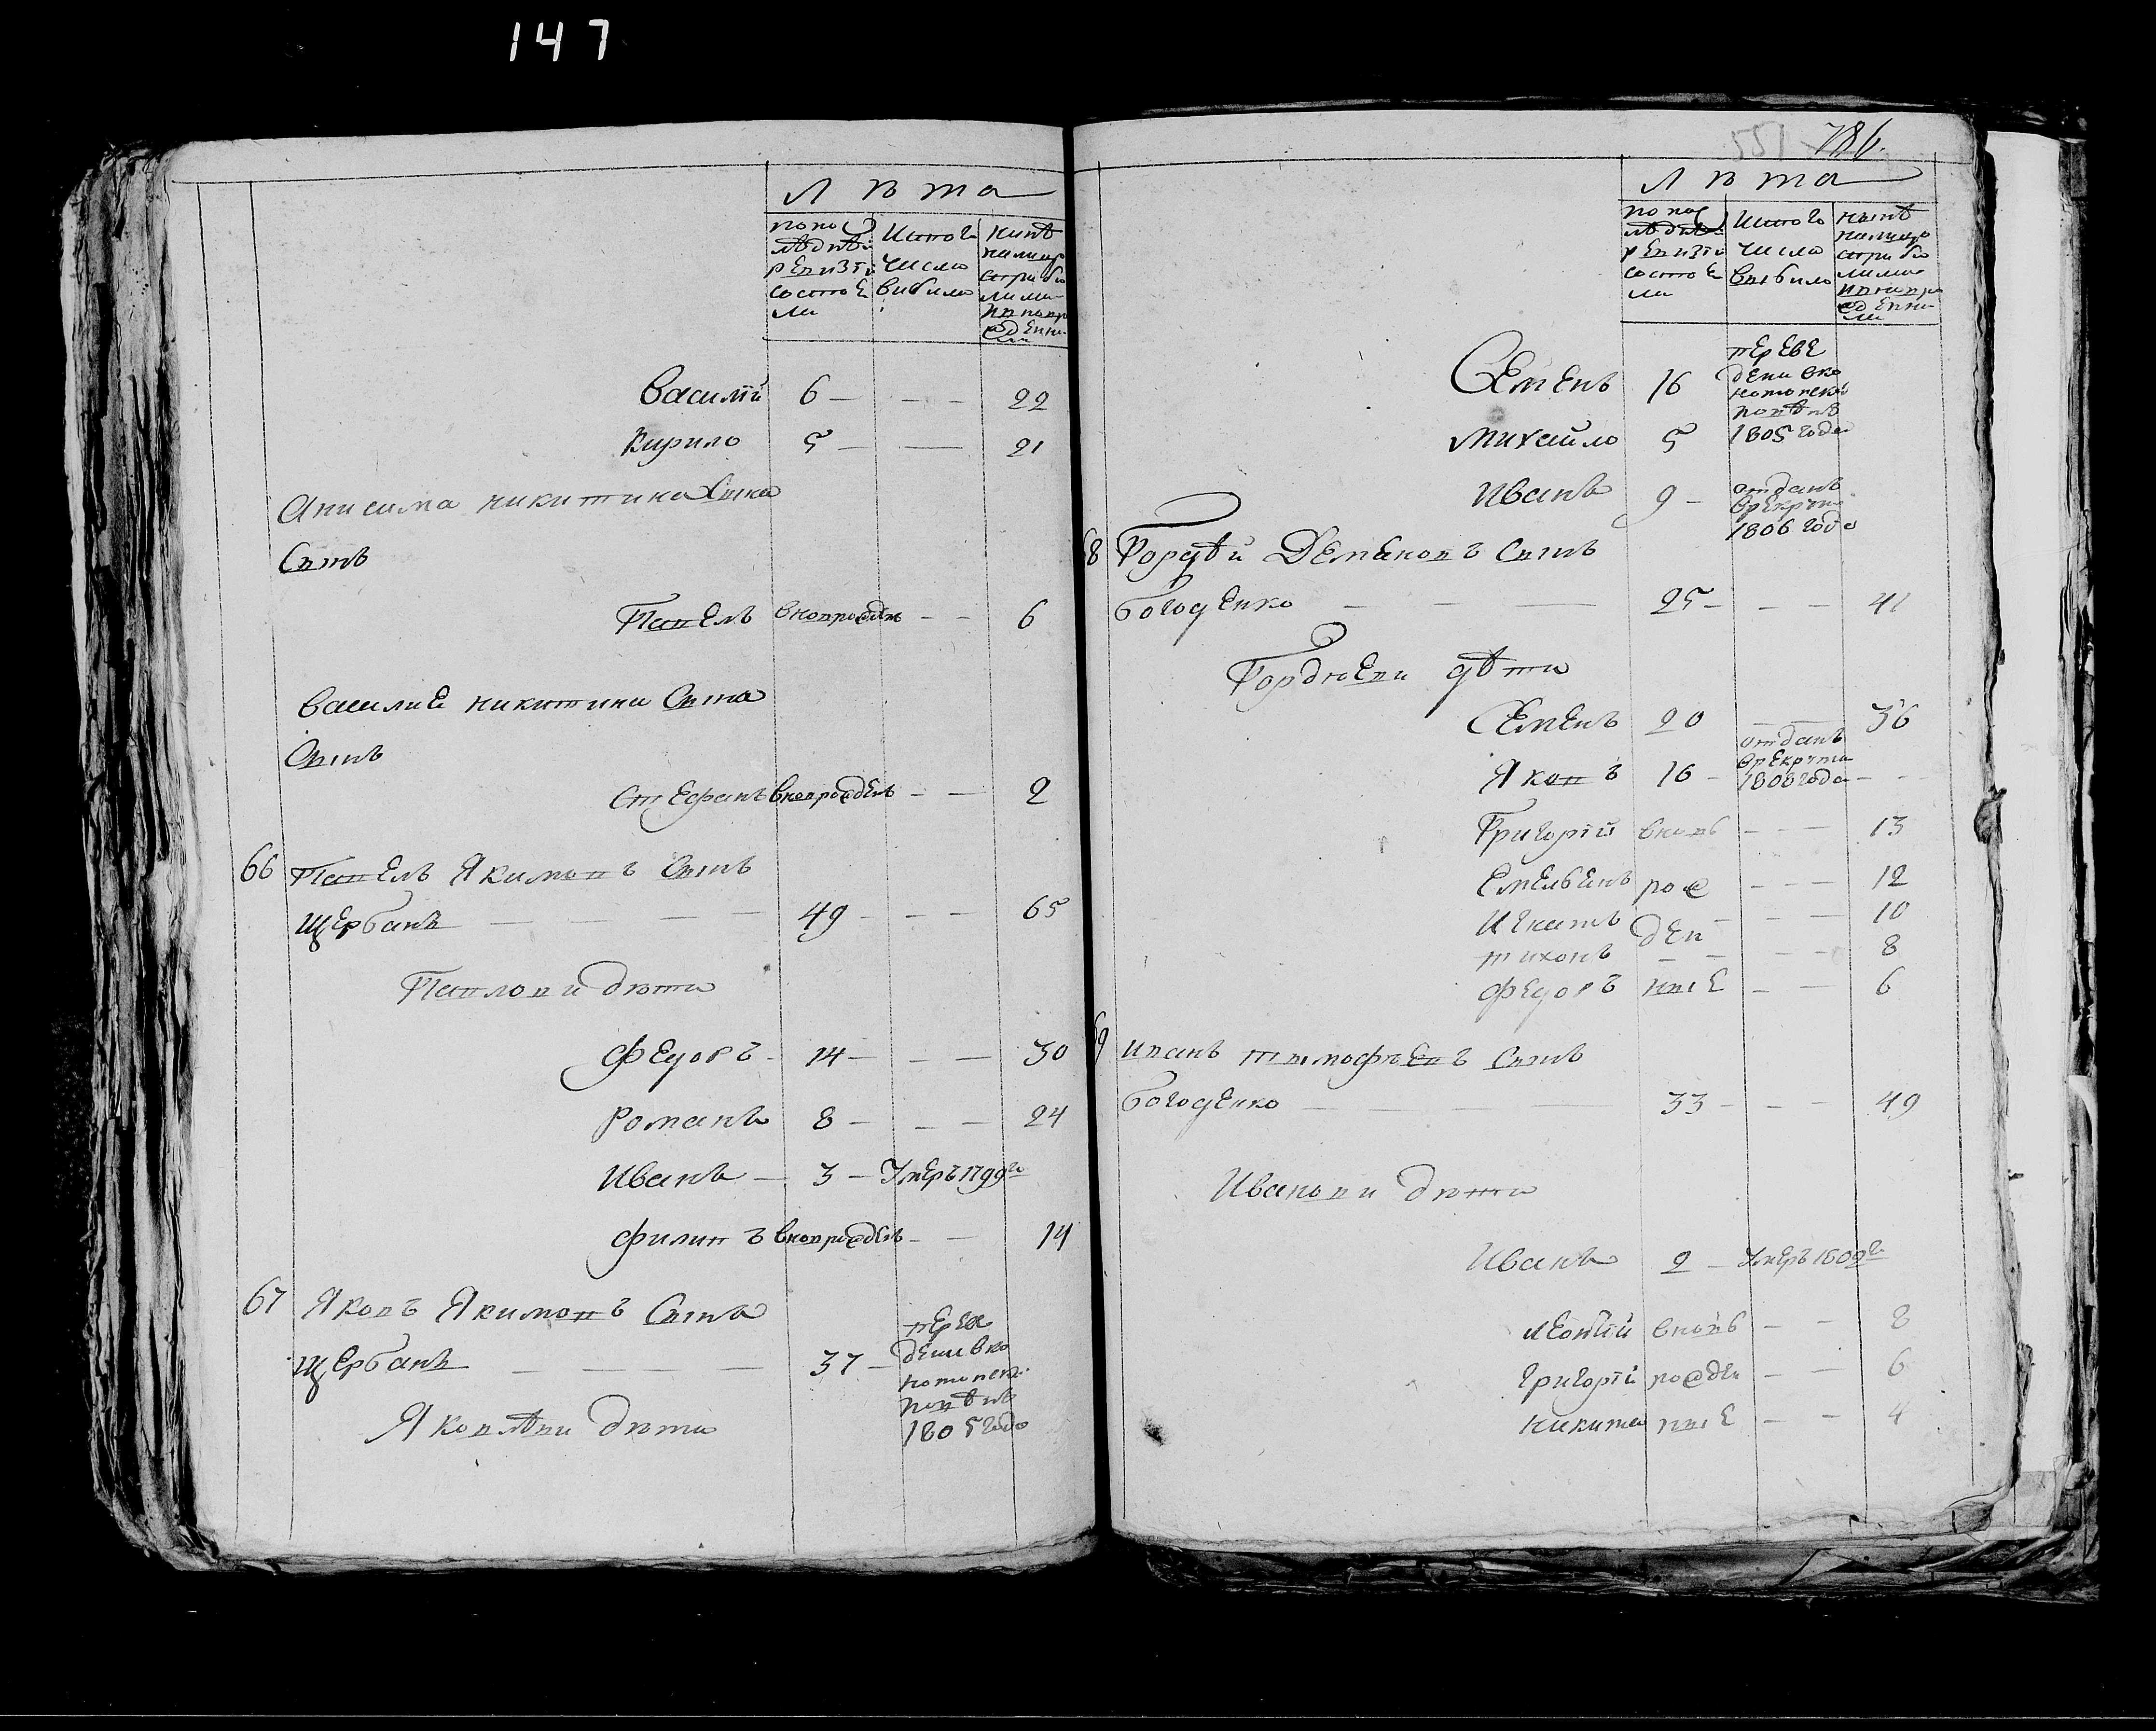 147
Лѣта
по пос
лѣднѣй
ревизіи
состое
ли
Ис того
числа
выбыло
Нынѣ
на лицо
с прибы
лыми
и вновь
рожденны
ми
Василій 6 — — — 22
Кирило 5 — — 21
Анисима Никитина Сына
Сынъ
Павелъ вновь рожден — — 6
Василия Никитина Сына
Сынъ
Стефанъ вновь рожденъ — — 2
66 Павелъ Якимовъ Сынъ
Щербань — — — — 49 — — — 65
Павлови дѣти
Федоръ — 14 — — — 30
Романъ 8 — — — 24
Иванъ — 3 — Умеръ 1799 го
Филипъ вновь рожденъ — — 14
67 Яковъ Якимовъ Сынъ
Щербань — — — 37 —
переве
дени в ко
нотопской
повѣтъ
1805 года
Яковлѣви дѣти
551 786.
Лѣта
по пос
лѣднѣй
ревизіи
состое
ли
Ис того
число
выбыло
Нынѣ
на лицо
с прибы
лыми
и вновь ро
жденны
ми
Семенъ 16
переве
дени в ко
нотопской
повѣтъ
1805 года
Михайло 5
Иванъ 9 —
отданъ
в рекруты
1806 года
68 Гордѣй Деменовъ Сынъ
Богоденко — — — 25 — — — 41
Гордѣеви дѣти
Семенъ 20 — — 36
Яковъ 16 —
отданъ
в рекруты
1808 года — —
Григорій вновь — — — 13
Емельенъ рож — — — 12
Игнатъ ден — — — 10
Тихонъ — — — — 8
Федоръ ные — — 6
69 Иванъ Тимофѣевъ Сынъ
Богоденко — — 33 — — — 49
Иванови дѣти
Иванъ 2 — Умеръ 1809 го
Леонтій вновь — — 8
Григорій рожден — — 6
Никита ные — — 4